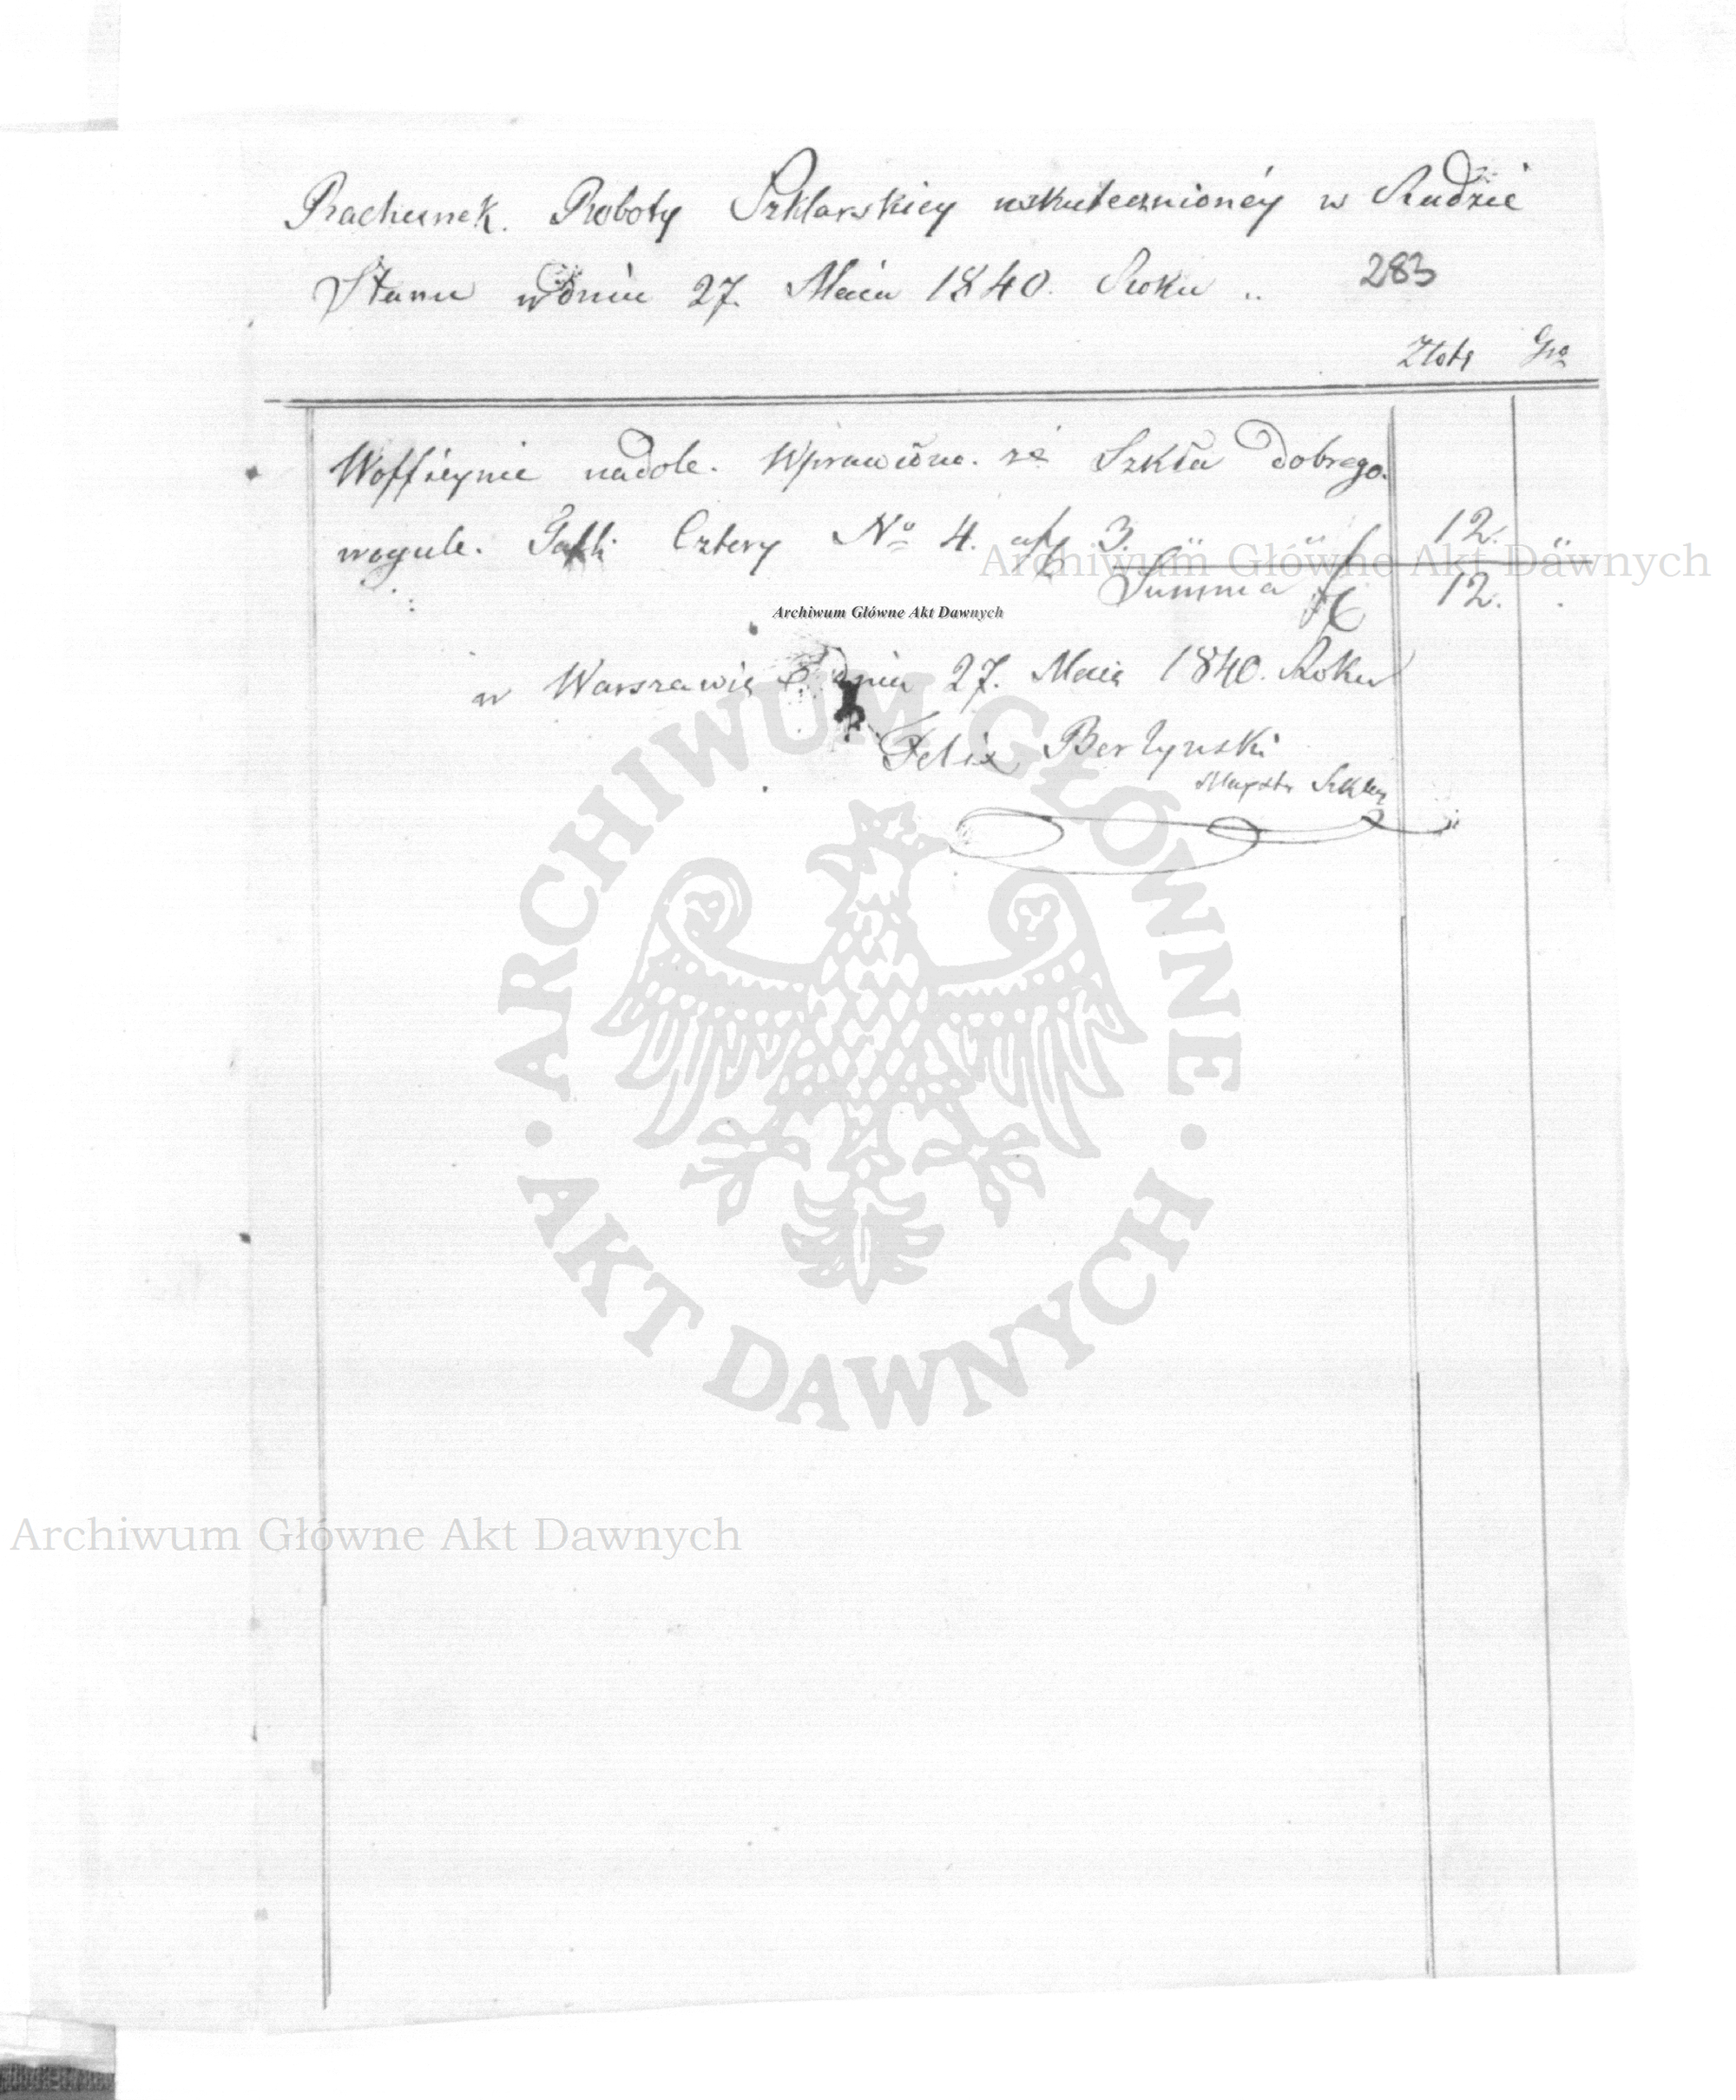 Rachunek. Roboty Szklarskiey uskutecznionéy w Radzie
Stanu w dniu 27. Maia 1840. Roku ..
283
Złoty Gro
Woffieynie nadole. Wprawiono. ze Szkła dobrego.
wogule. Tafli Cztery No 4. afp 3. " " f 12. "
Summa f 12.
w Warszawie d dnia 27. Maia 1840. Roku
Felix Berlynski
Maystr Szklar
Archiwum Główne Akt Dawnych
Archiwum Główne Akt Dawnych
ARCHIWUM GŁÓWNE
AKT DAWNYCH
Archiwum Główne Akt Dawnych